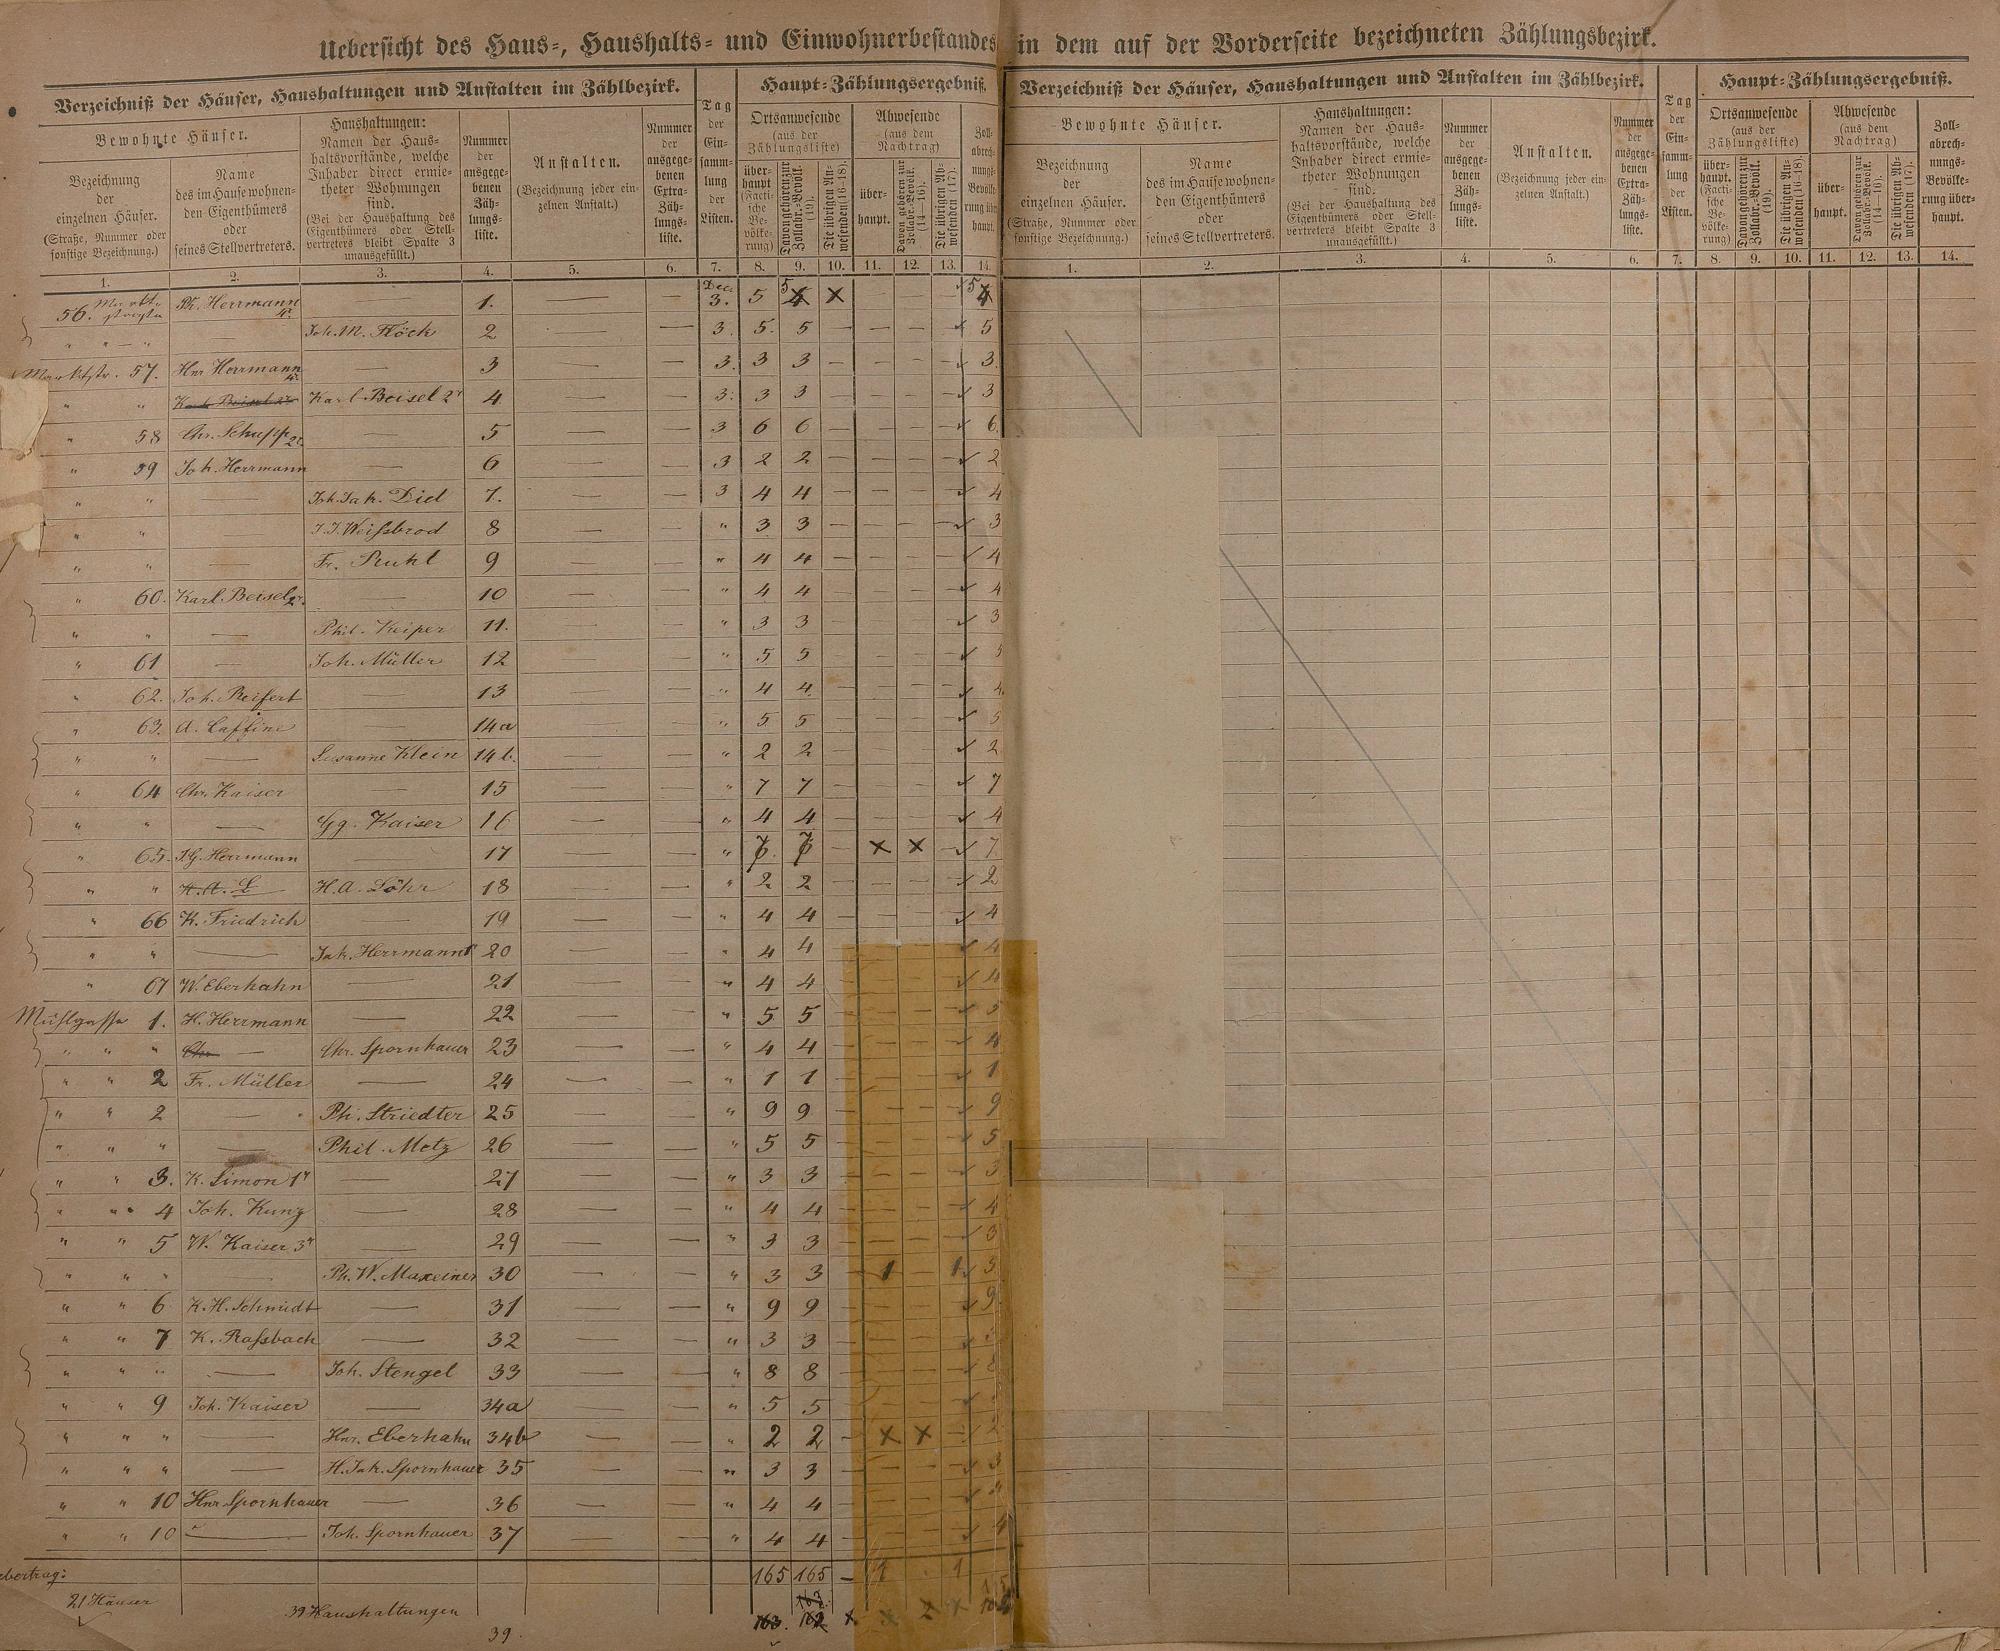 Uebersicht des Haus-, Haushalts- und Einwohnerbestandes in dem auf der Vorderseite bezeichneten Zählungsbezirk.
Verzeichniß der Häuser, Haushaltungen und Anstalten im Zählbezirk.
Bewohnte Häuser.
Bezeichnung der einzelnen Häuser. (Straße, Nummer oder sonstige Bezeichnung.)
Name des im Hause wohnenden Eigenthümers oder seines Stellvertreters.
Haushaltungen: Namen der Haushaltsvorstände, welche Inhaber direct ermietheter Wohnungen sind. (Bei der Haushaltung des Eigenthümers oder Stellvertreters bleibt Spalte 3 unausgefüllt.)
Nummer der ausgegebenen Zählungsliste.
Anstalten. (Bezeichnung jeder einzelnen Anstalt.)
Nummer der ausgegebenen Extra-Zählungsliste.
Tag der Einsammlung der Listen.
Haupt-Zählungsergebniß.
Ortsanwesende (aus der Zählungsliste)
überhaupt (Factische Bevölkerung)
Davon gehören zur Zollabr.-Bevölk. (19).
Die übrigen Anwesenden (16-18).
Abwesende (aus dem Nachtrag)
überhaupt.
Davon gehören zur Zollabr.-Bevölk. (14-16).
Die übrigen Abwesenden (17).
Zollabrechnungs-Bevölkerung überhaupt.
1. 2. 3. 4. 5. 6. 7. 8. 9. 10. 11. 12. 13. 14.
56. Marktstraße Ph. Herrmann 4r — 1. — — Dec. 3. 5 5 4 × — 5 4
" " — Joh. M. Flöck 2 — — 3. 5. 5 — — — 5
Marktstr. 57. Hnr Herrmann 4r — 3 — — 3. 3 3 — — — 3.
" " Karl Beisel 2r Karl Beisel 2r 4 — — 3. 3 3 — — — 3
" 58 Chr. Schupp 2r — 5 — — 3 6 6 — — — 6.
" 59 Joh. Herrmann — 6 — — 3 2 2 — — — 2
" " — Joh. Jak. Diel 7. — — 3 4 4 — — — 4
" " — J. J. Weißbrod 8 — — " 3 3 — — — 3
" " — Fr. Ruhl 9 — — " 4 4 — — — 4
" 60. Karl Beisel 2r. — 10 — — " 4 4 — — — 4
" " — Phil. Keiper 11. — — " 3 3 — — — 3
" 61 — Joh. Müller 12 — — " 5 5 — — — 5
" 62. Joh. Reifert — 13 — — " 4 4 — — — 4.
" 63. A. Caffine — 14a — — " 5 5 — — — 5
" " — Susanne Klein 14b. — — " 2 2 — — — 2
" 64 Chr. Kaiser — 15 — — " 7 7 — — — 7
" " — Gg. Kaiser 16 — — " 4 4 — — — 4
" 65. J. G. Herrmann — 17 — — " 7 7 — × × 7.
" " H. A. L H. A. Löhr 18 — — " 2 2 — — — 2
" 66 K. Friedrich — 19 — — " 4 4 — — — 4
" " — Jak. Herrmann 20 — — " 4 4 — — — 4
" 67 W. Eberhahn — 21 — — " 4 4 — — — 4
Mühlgasse 1. H. Herrmann — 22 — — " 5 5 — — — 5
" " " Chr — Chr. Spornhauer 23 — — " 4 4 — — — 4
" " 2 Fr. Müller — 24 — — " 1 1 — — — 1
" " 2 — Ph. Striedter 25 — — " 9 9 — — — 9
" " " — Phil. Metz 26 — — " 5 5 — — — 5
" " 3. K. Simon 1r — 27 — — " 3 3 — — — 3
" " 4 Joh. Kunz — 28 — — " 4 4 — — — 4
" " 5 W. Kaiser 3r — 29 — — " 3 3 — — — 3
" " " — Ph. W. Maxeiner 30 — — " 3 3 — 1 — 1 3
" " 6 K. H. Schmidt — 31 — — " 9 9 — — — 9
" " 7 K. Raßbach — 32 — — " 3 3 — — — 3
" " " — Joh. Stengel 33 — — " 8 8 — — — 8
" " 9 Joh. Kaiser — 34a — — " 5 5 — — —
" " " — Hnr. Eberhahn 34b — — " 2 2 — × × — 2
" " " — H. Jak. Spornhauer 35 — — " 3 3 — — — 3
" " 10 Hnr Spornhauer — 36 — — " 4 4 — — —
" " 10 " — Joh. Spornhauer 37 — — " 4 4 — — — 4
ebertrag: 165 165 — 1 . 1
21 Häuser 39 Haushaltungen 39. 163. 162 × × 2
Verzeichniß der Häuser, Haushaltungen und Anstalten im Zählbezirk.
Bewohnte Häuser.
Bezeichnung der einzelnen Häuser. (Straße, Nummer oder sonstige Bezeichnung.)
Name des im Hause wohnenden Eigenthümers oder seines Stellvertreters.
Haushaltungen: Namen der Haushaltsvorstände, welche Inhaber direct ermietheter Wohnungen sind. (Bei der Haushaltung des Eigenthümers oder Stellvertreters bleibt Spalte 3 unausgefüllt.)
Nummer der ausgegebenen Zählungsliste.
Anstalten. (Bezeichnung jeder einzelnen Anstalt.)
Nummer der ausgegebenen Extra-Zählungsliste.
Tag der Einsammlung der Listen.
Haupt-Zählungsergebniß.
Ortsanwesende (aus der Zählungsliste)
überhaupt. (Factische Bevölkerung)
Davon gehören zur Zollabr.-Bevölk. (19).
Die übrigen Anwesenden (16-18).
Abwesende (aus dem Nachtrag)
überhaupt.
Davon gehören zur Zollabr.-Bevölk. (14-16).
Die übrigen Abwesenden (17).
Zollabrechnungs-Bevölkerung überhaupt.
1. 2. 3. 4. 5. 6. 7. 8. 9. 10. 11. 12. 13. 14.